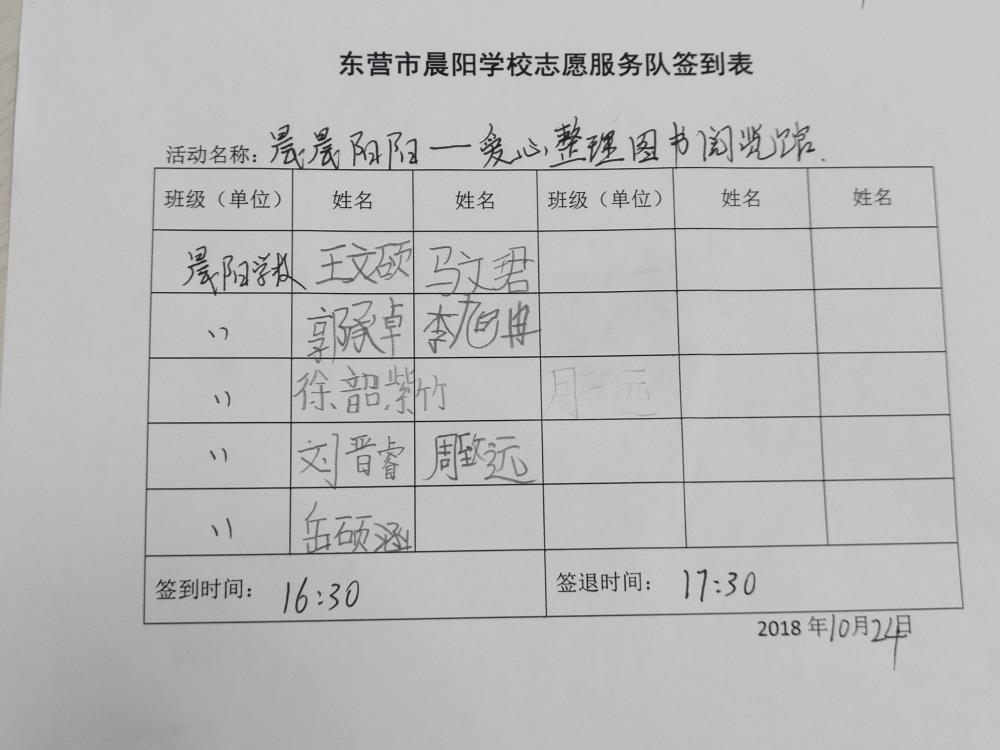 东营市晨阳学校志愿服务队签到表
活动名称：晨晨阳阳——爱心整理图书阅览馆.
班级（单位） 姓名 姓名 班级（单位） 姓名 姓名
晨阳学校 王文硕 马文君
〃 郭承卓 李旭冉
〃 徐韶紫竹 周致远
〃 刘晋睿 周致远
〃 岳硕涵
签到时间： 16:30 签退时间： 17:30
2018 年10月24日